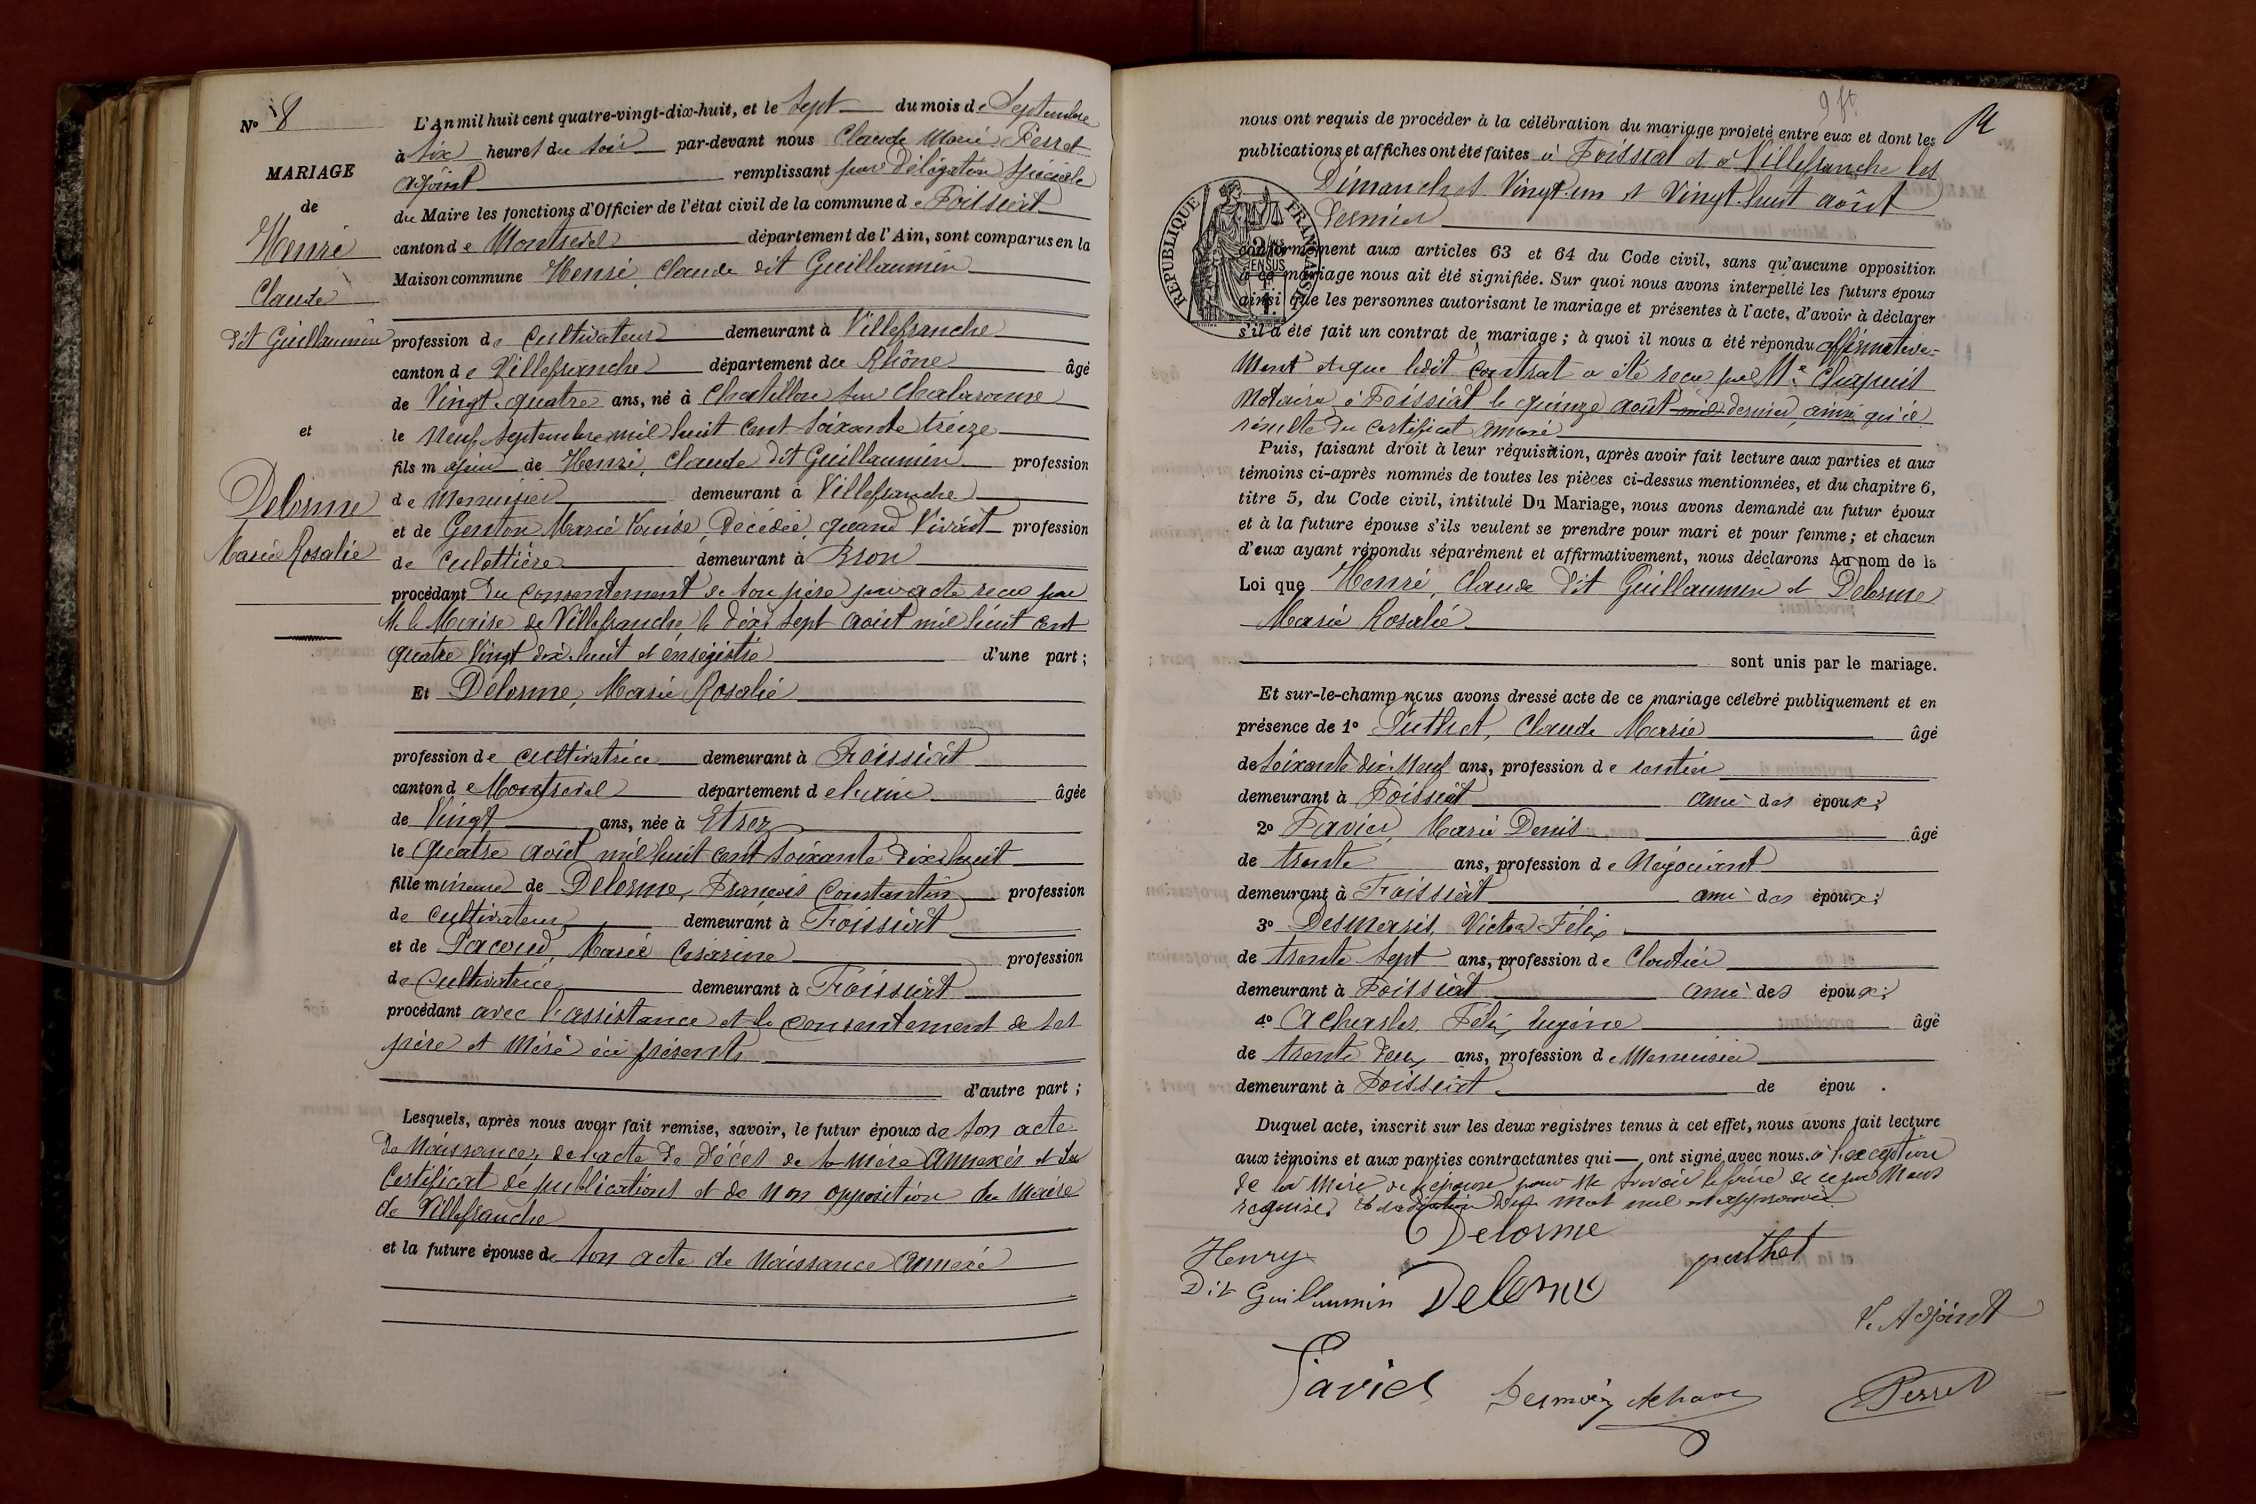 No 8
MARIAGE
de
Henri
Claude
dit Guillaumin
et
Delorme
Marie Rosalie
L'An mil huit cent quatre-vingt-dix-huit, et le sept du mois de Septembre
à six heures du soir par-devant nous Claude Marie Perret
adjoint remplissant par délégation spéciale
du Maire les fonctions d'Officier de l'état civil de la commune de Foissiat
canton de Montrevel département de l'Ain, sont comparus en la
Maison commune Henri, Claude dit Guillaumin
profession de cultivateur demeurant à Villefranche
canton de Villefranche département du Rhône âgé
de Vingt-quatre ans, né à Chatillon sur Chalaronne
le neuf Septembre mil huit cent soixante treize
fils majeur de Henri, Claude dit Guillaumin profession
de Menuisier demeurant à Villefranche
et de Genton Marie Louise, décédée, quand vivait profession
de culottière demeurant à Bron
procédant du consentement de son père par acte reçu par
M. le Maire de Villefranche, le dix sept août mil huit cent
quatre vingt dix huit et enregistré d'une part ;
Et Delorme, Marie Rosalie
profession de cultivatrice demeurant à Foissiat
canton de Montrevel département de l'ain âgée
de Vingt ans, née à Etrez
le quatre août mil huit cent soixante dix huit
fille mineure de Delorme, François Constantin profession
de cultivateur demeurant à Foissiat
et de Pacoud, Marie Césarine profession
de Cultivatrice demeurant à Foissiat
procédant avec l'assistance et le consentement de ses
père et mère ici présents
d'autre part ;
Lesquels, après nous avoir fait remise, savoir, le futur époux de son acte
de naissance, de l'acte de décès de sa mère annexés et du
Certificat de publications et de non opposition du Maire
de Villefranche
et la future épouse de son acte de naissance annexé
9 ft
nous ont requis de procéder à la célébration du mariage projeté entre eux et dont les
publications et affiches ont été faites à Foissiat et à Villefranche les
Dimanches Vingt-un et Vingt-huit août
dernier
REPUBLIQUE FRANÇAISE
conformément aux articles 63 et 64 du Code civil, sans qu'aucune opposition
à ce mariage nous ait été signifiée. Sur quoi nous avons interpellé les futurs époux
ainsi que les personnes autorisant le mariage et présentes à l'acte, d'avoir à déclarer
s'il a été fait un contrat de mariage ; à quoi il nous a été répondu affirmative-
ment et que ledit contrat a été reçu par Me
Notaire à Foissiat le quinze août mil dernier, ainsi qu'il
résulte du certificat annexé
Puis, faisant droit à leur réquisition, après avoir fait lecture aux parties et aux
témoins ci-après nommés de toutes les pièces ci-dessus mentionnées, et du chapitre 6,
titre 5, du Code civil, intitulé Du Mariage, nous avons demandé au futur époux
et à la future épouse s'ils veulent se prendre pour mari et pour femme ; et chacun
d'eux ayant répondu séparément et affirmativement, nous déclarons Au nom de la
Loi que Henri, Claude dit Guillaumin et Delorme
Marie Rosalie
sont unis par le mariage.
Et sur-le-champ nous avons dressé acte de ce mariage célébré publiquement et en
présence de 1° Puthet, Claude Marie âgé
de soixante dix-neuf ans, profession de rentier
demeurant à Foissiat ami des époux ;
2° Favier, Marie Denis âgé
de trente ans, profession de Négociant
demeurant à Foissiat ami des époux ;
3° Desmaris, Victor Félix
de trente sept ans, profession de Cloutier
demeurant à Foissiat ami des époux ;
4° Félix Eugène âgé
de trente deux ans, profession de Menuisier
demeurant à Foissiat de épou .
Duquel acte, inscrit sur les deux registres tenus à cet effet, nous avons fait lecture
aux témoins et aux parties contractantes qui ont signé avec nous. à l'exception
de la mère de l'épouse pour ne savoir le faire de ce par nous
requise. mot mil est approuvée
Delorme
Henry
puthet
Dit Guillaumin Delorme
L'Adjoint
Favier
Perret